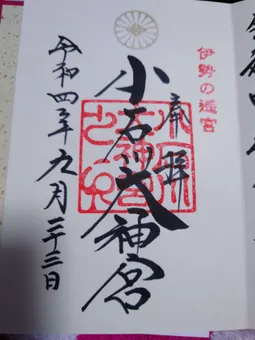 伊勢の遥宮
奉拝
小石川大神宮
令和四年九月二十三日